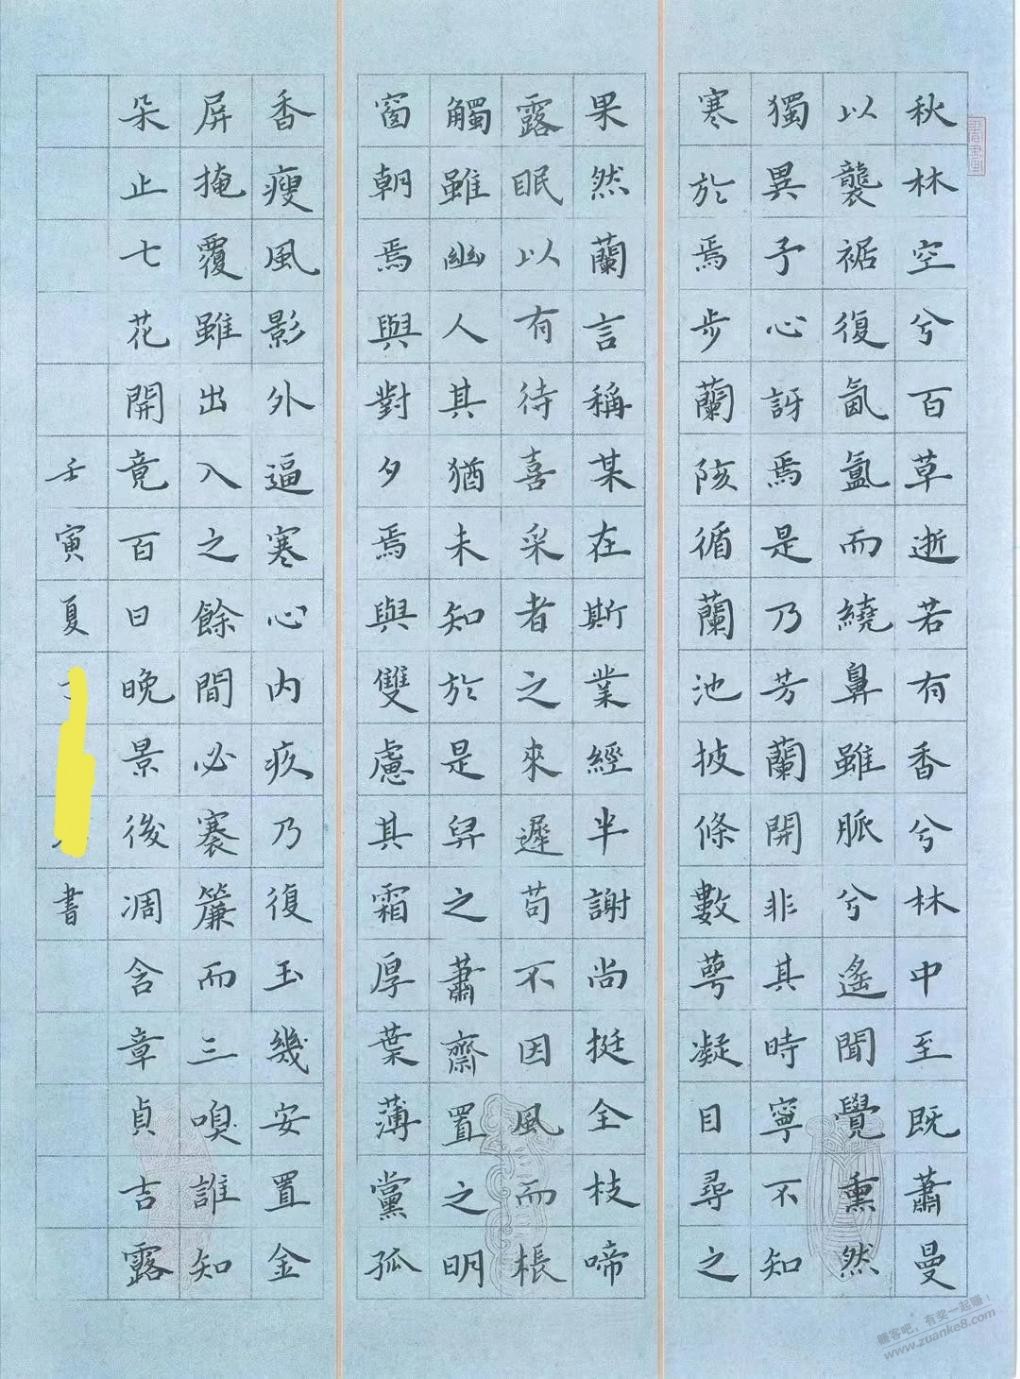 秋林空兮百草逝若有香兮林中至既蕭曼
以襲裾復氤氳而繞鼻雖脈兮遙聞覺熏然
獨異予心訝焉是乃芳蘭開非其時寧不知
寒於焉步蘭陔循蘭池披條數萼凝目尋之
果然蘭言稱某在斯業經半謝尚挺全枝啼
露眠以有待喜采者之來遲苟不因風而棖
觸雖幽人其猶未知於是舁之蕭齋置之明
窗朝焉與對夕焉與雙慮其霜厚葉薄黨孤
香瘦風影外逼寒心內疚乃復玉幾安置金
屏掩覆雖出入之餘間必褰簾而三嗅誰知
朵止七花開竟百日晚景後凋含章貞吉露
壬寅夏
書
賺客吧，有獎一起賺！
www.zuanke8.com